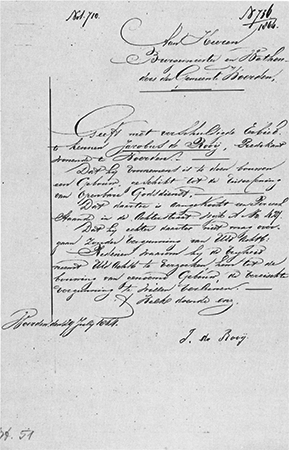 Aan Heeren
Burgemeester en Wethou-
ders der Gemeente Woerden,
Geeft met verschuldigde Eerbied
te kennen Jacobus de Rooij, Predikant
wonende te Woerden.
Dat hij voornemens is te doen bouwen
een Gebouw, geschikt tot de uitoefening
van Openbare Godsdienst.
Dat daartoe is aangekocht een Perceel
staande in de Achterstraat
Dat hij echter daartoe niet mag over-
gaan zonder vergunning van UEd Achtb.
Redenen waarom hij de vrijheid
neemt UEd Achtb. te verzoeken hem tot de
bouwing van genoemd Gebouw, de vereischte
vergunning te willen verleenen.
't Welk doende enz.
Woerden den 29 July 1864.
J. de Rooij
51